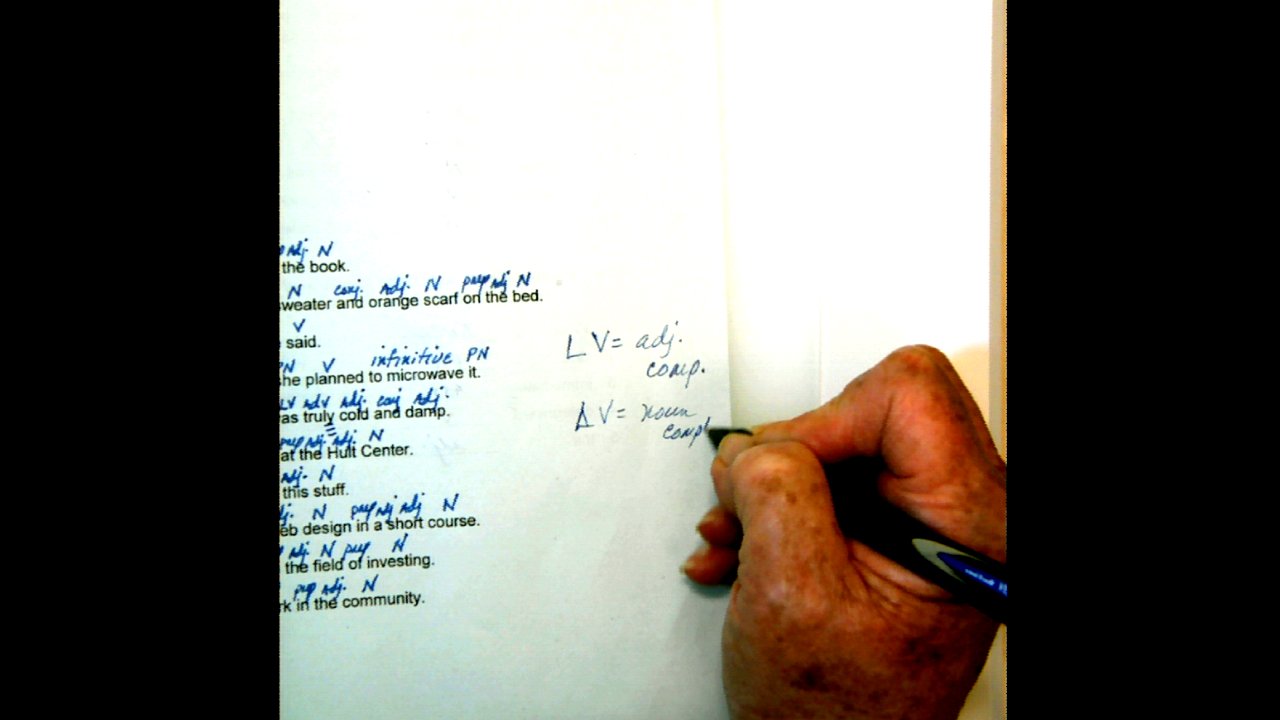 Adj. N
the book.
N conj. Adj. N prep Adj N
sweater and orange scarf on the bed.
V
said.
PN V infinitive PN
she planned to microwave it.
LV Adv Adj. conj Adj.
as truly cold and damp.
prep Adj. Adj. N
at the Hult Center.
Adj. N
this stuff.
dj. N prep Adj Adj N
eb design in a short course.
Adj. N prep N
the field of investing.
prep Adj. N
rk in the community.
LV = adj.
comp.
LV = noun
comp